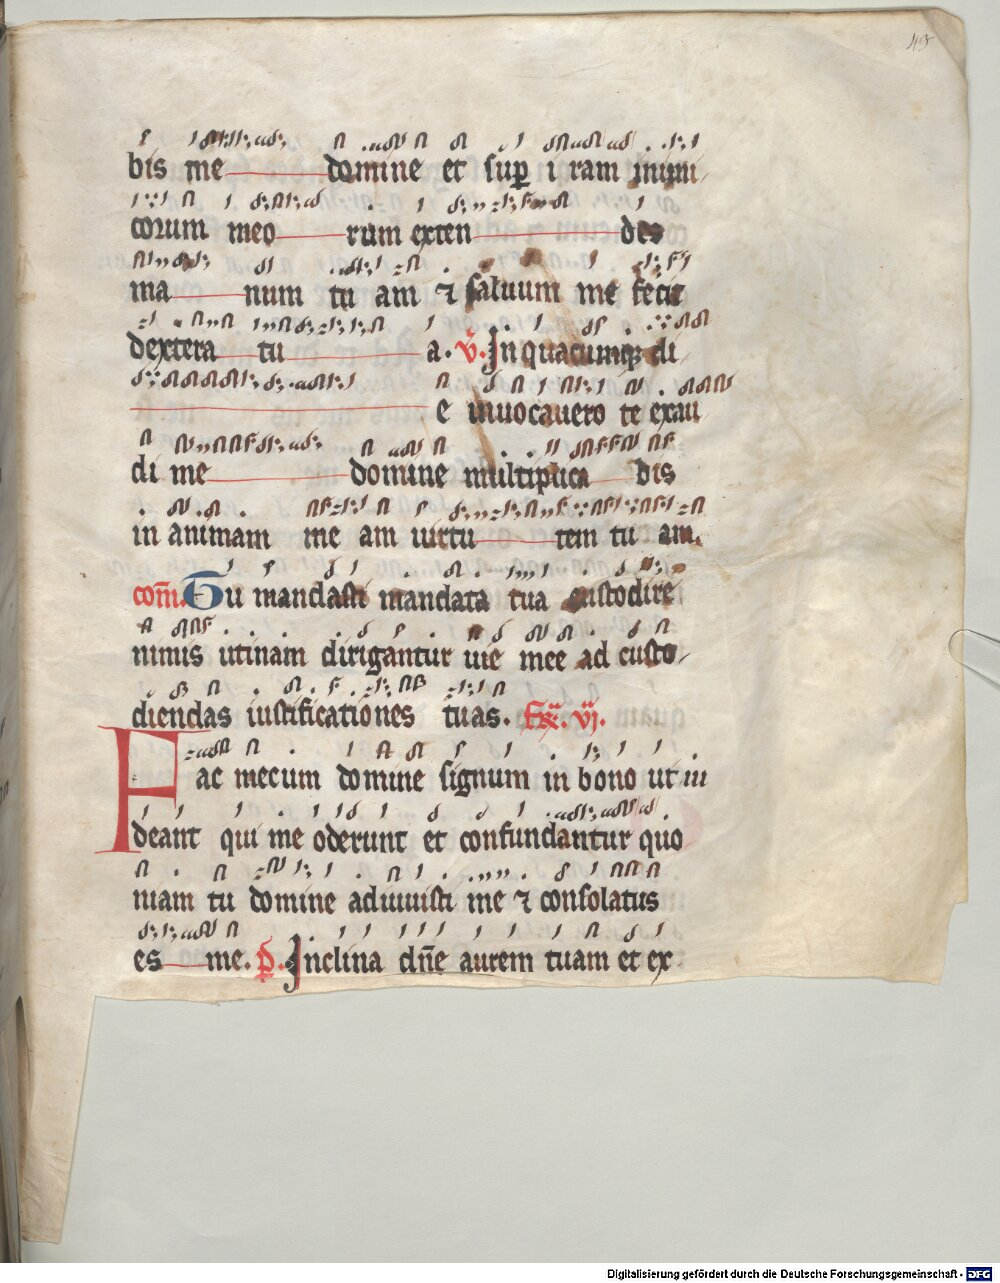 49
bis me domine et sup̲ i ram inimi
corum meo rum exten des
ma num tu am ⁊ saluum me fecit
dextera tu a. V̓. In quacumq₃ di
e inuocauero te exau
di me domine multiplica bis
in animam me am uirtu tem tu am.
com̄. Tu mandasti mandata tua custodire
nimis utinam dirigantur uie mee ad custo
diendas iustificationes tuas. vj.
Fac mecum domine signum in bono ut ui
deant qui me oderunt et confundantur quo
niam tu domine adiuuisti me ⁊ consolatus
es me. p̄. Inclina dn̄e aurem tuam et ex
Digitalisierung gefördert durch die Deutsche Forschungsgemeinschaft - DFG